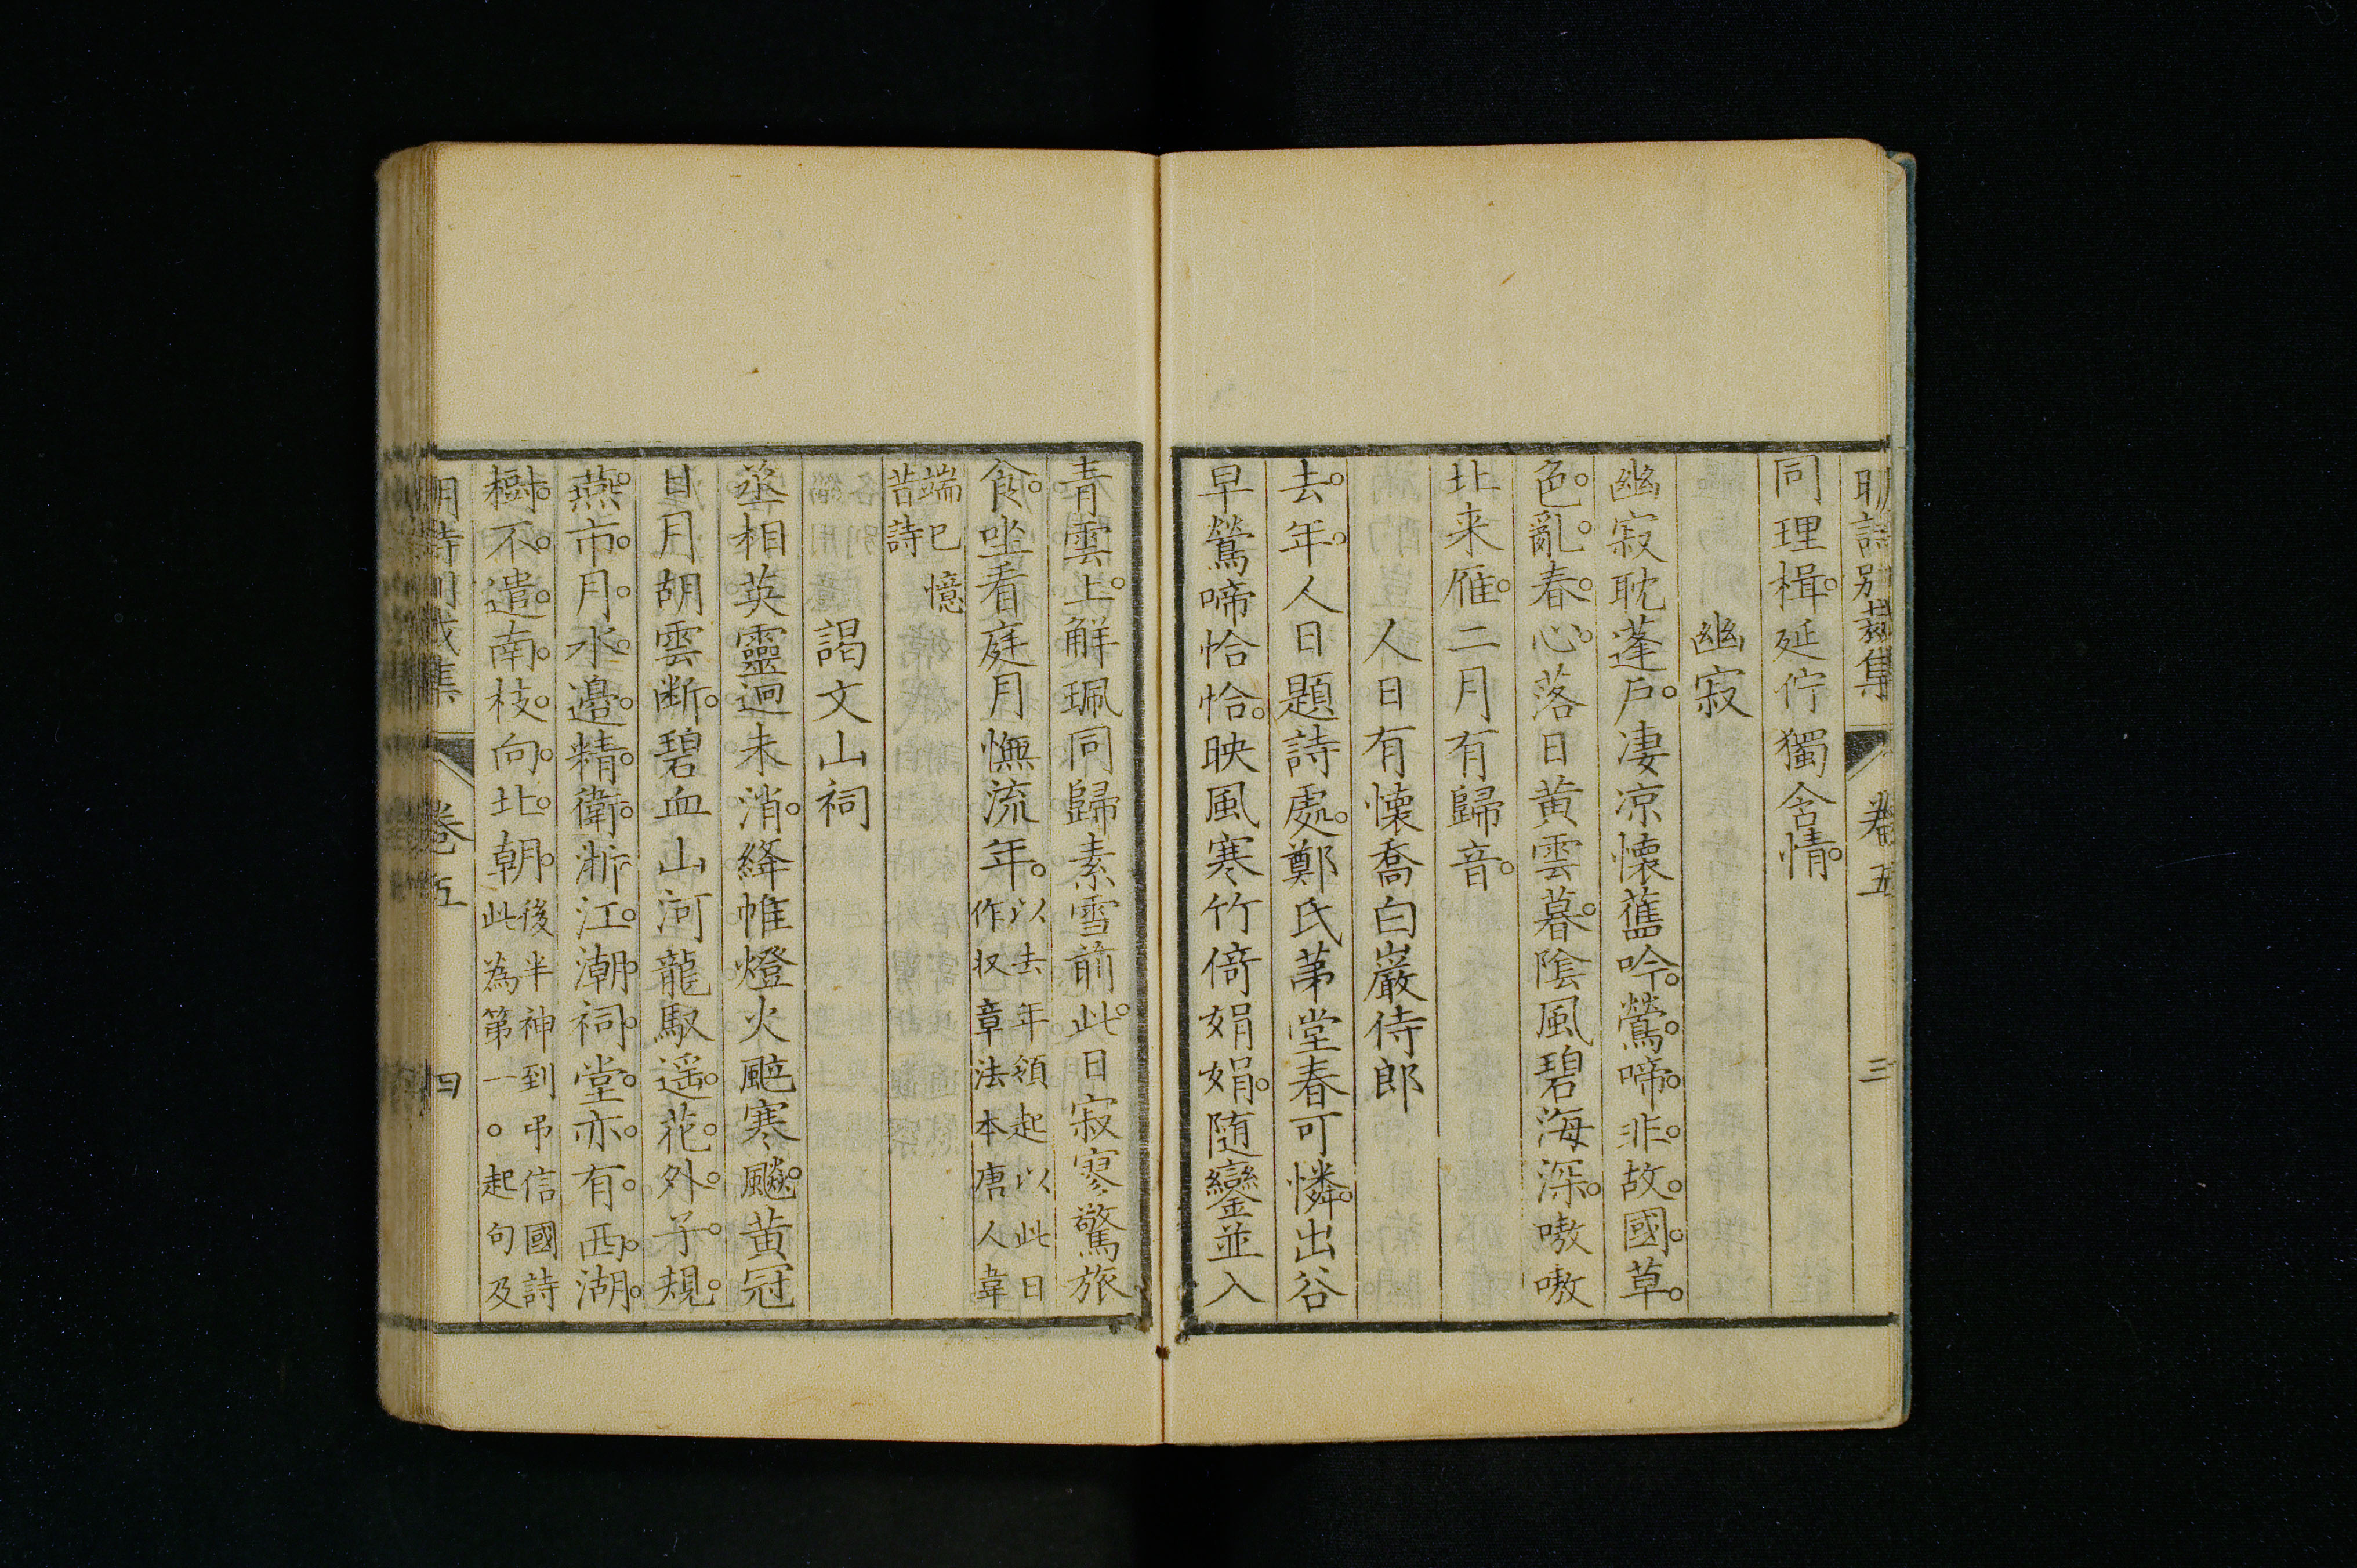 明詩別裁集 卷五 三
同理楫。延佇獨含情。
幽寂
幽寂耽蓬戶。凄凉懷舊吟。鶯。啼。非。故。國。草。
色。亂。春。心。落日黄雲暮。陰風碧海深。嗷嗷
北来雁。二月有歸音。
人日有懷喬白巖侍郎
去。年。人日題詩處。鄭氏茅堂春可憐。出谷
早鶯啼恰恰。映風寒竹倚娟娟。随鑾並入
青雲上。解珮同歸素雪前。此日寂寥驚旅
食。坐看庭月憮流年。以去年領起以此日
作収章法本唐人韋
端巳憶
昔詩
謁文山祠
丞相英靈迥未消。絳帷燈火颭寒飈。黄冠
日月胡雲断。碧血山河龍馭遥。花。外。子。規。
燕。市。月。水。邉。精。衛。淛。江。潮。祠。堂。亦。有。西。湖。
樹。不。遣。南。枝。向。北。朝。後半神到弔信國詩
此為第一。起句及
明詩別裁集 卷五 四